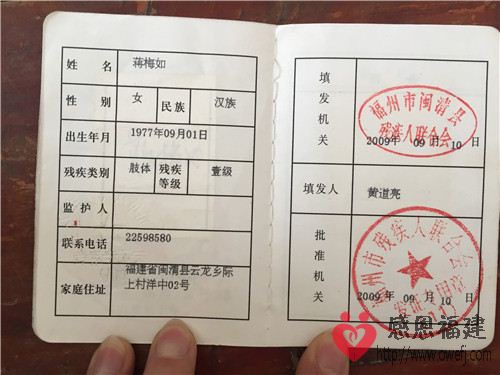 姓 名 蒋梅如
性 别 女 民族 汉族
出生年月 1977年09月01日
残疾类别 肢体 残疾等级 壹级
监 护 人
联系电话 22598580
家庭住址 福建省闽清县云龙乡际
上村洋中02号
填发机关
福州市闽清县
残疾人联合会
2009年 09月 10日
填发人 黄道亮
批准机关
福州市残疾人联合会
2009年 09月 10日
感恩福建
www.owefj.com